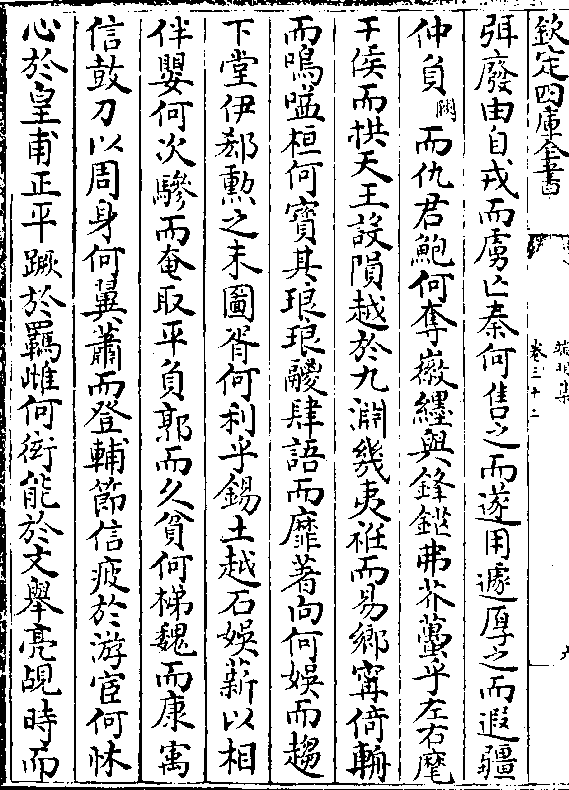 欽定四庫全書
卷三十二
弭廢由自戎而虜亡秦何售之而遂用遽厚之而遐疆
仲負闕而仇君鮑何奪嶽纆與鋒鎧弗芥蔕乎左右麾
干侯而拱天王設隕越於九淵幾夷袵而易鄉甯倚輈
而鳴嗌桓何寶其琅琅鬷肆語而靡著向何娛而趨
下堂伊郄勲之未圖胥何利乎錫土越石娛薪以相
伴嬰何次驂而奄取平負郭而久貧何梯魏而康寓
信鼓刀以周身何翼蕭而登輔節信疲於游宦何怵
心於皇甫正平蹶於羈雌何衒能於文舉亮覘時而